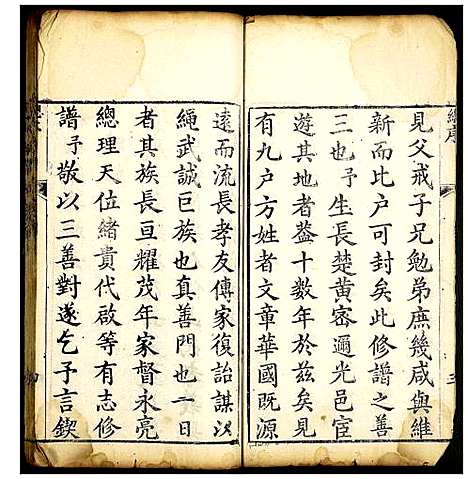 總序
見父戒子兄勉弟庶幾咸與維
新而比户可封矣此修譜之善
三也予生長楚黄密邇光邑宦
遊其地者葢十數年於兹矣見
有九户方姓者文章華國既源
遠而流長孝友傳家復詒謀以
繩武誠巨族也真善門也一日
者其族長亘耀茂年家督永亮
總理天位緒貴代啟等有志修
譜予敬以三善對遂乞予言鍥